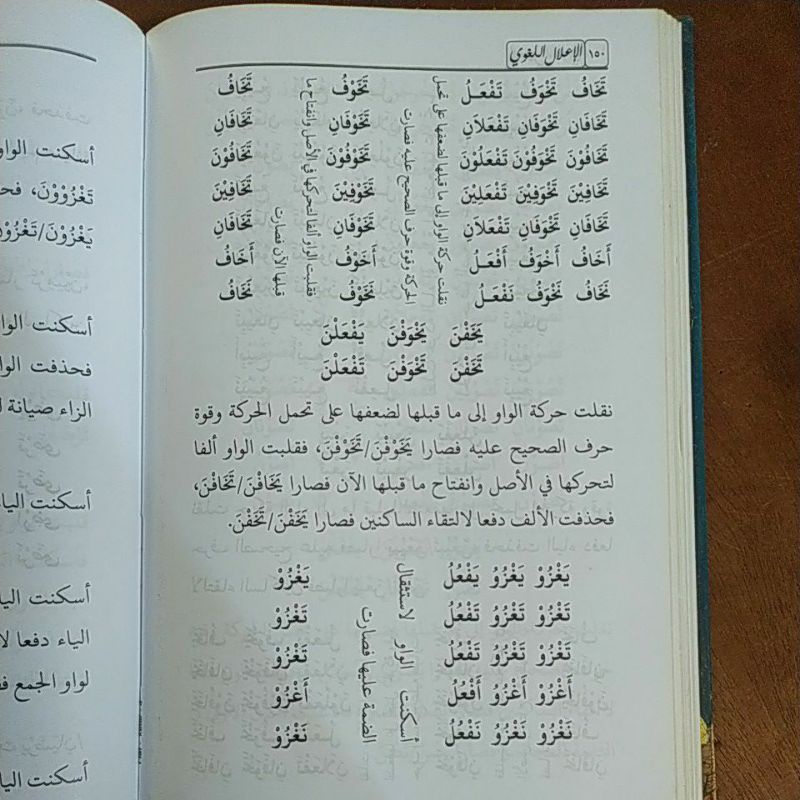 ١٥٠ الإعلال اللغوي
تَخَافُ تَخْوَفُ تَفْعَلُ تَخَوْفُ تَخَافُ
تَخَافَانِ تَخْوَفَانِ تَفْعَلاَنِ تَخَوْفَانِ تَخَافَانِ
تَخَافُوْنَ تَخْوَفُوْنَ تَفْعَلُوْنَ تَخَوْفُوْنَ تَخَافُوْنَ
تَخَافِيْنَ تَخْوَفِيْنَ تَفْعَلِيْنَ تَخَوْفِيْنَ تَخَافِيْنَ
تَخَافَانِ تَخْوَفَانِ تَفْعَلاَنِ تَخَوْفَانِ تَخَافَانِ
أَخَافُ أَخْوَفُ أَفْعَلُ أَخَوْفُ أَخَافُ
نَخَافُ نَخْوَفُ نَفْعَلُ نَخَوْفُ نَخَافُ
نقلت حركة الواو إلى ما قبلها لضعفها على تحمل
الحركة وقوة حرف الصحيح عليه فصارت
فقلبت الواو ألفا لتحركها في الأصل وانفتاح ما
قبلها الآن فصارت
يَخَفْنَ يَخْوَفْنَ يَفْعَلْنَ
تَخَفْنَ تَخْوَفْنَ تَفْعَلْنَ
نقلت حركة الواو إلى ما قبلها لضعفها على تحمل الحركة وقوة
حرف الصحيح عليه فصارا يَخَوْفْنَ/تَخَوْفْنَ، فقلبت الواو ألفا
لتحركها في الأصل وانفتاح ما قبلها الآن فصارا يَخَافْنَ/تَخَافْنَ،
فحذفت الألف دفعا لالتقاء الساكنين فصارا يَخَفْنَ/تَخَفْنَ.
يَغْزُوْ يَغْزُوُ يَفْعُلُ يَغْزُوْ
تَغْزُوْ تَغْزُوُ تَفْعُلُ تَغْزُوْ
تَغْزُوْ تَغْزُوُ تَفْعُلُ تَغْزُوْ
أَغْزُوْ أَغْزُوُ أَفْعُلُ أَغْزُوْ
نَغْزُوْ نَغْزُوُ نَفْعُلُ نَغْزُوْ
أسكنت الواو لاستثقال
الضمة عليها فصارت
أسكنت الواو
تَغْزُوْوْنَ، فحذ
يَغْزُوْنَ/تَغْزُوْنَ
أسكنت الواو
فحذفت الواو
الزاء صيانة
أسكنت الياء
أسكنت الياء
الياء دفعا
لواو الجمع
أسكنت الياء